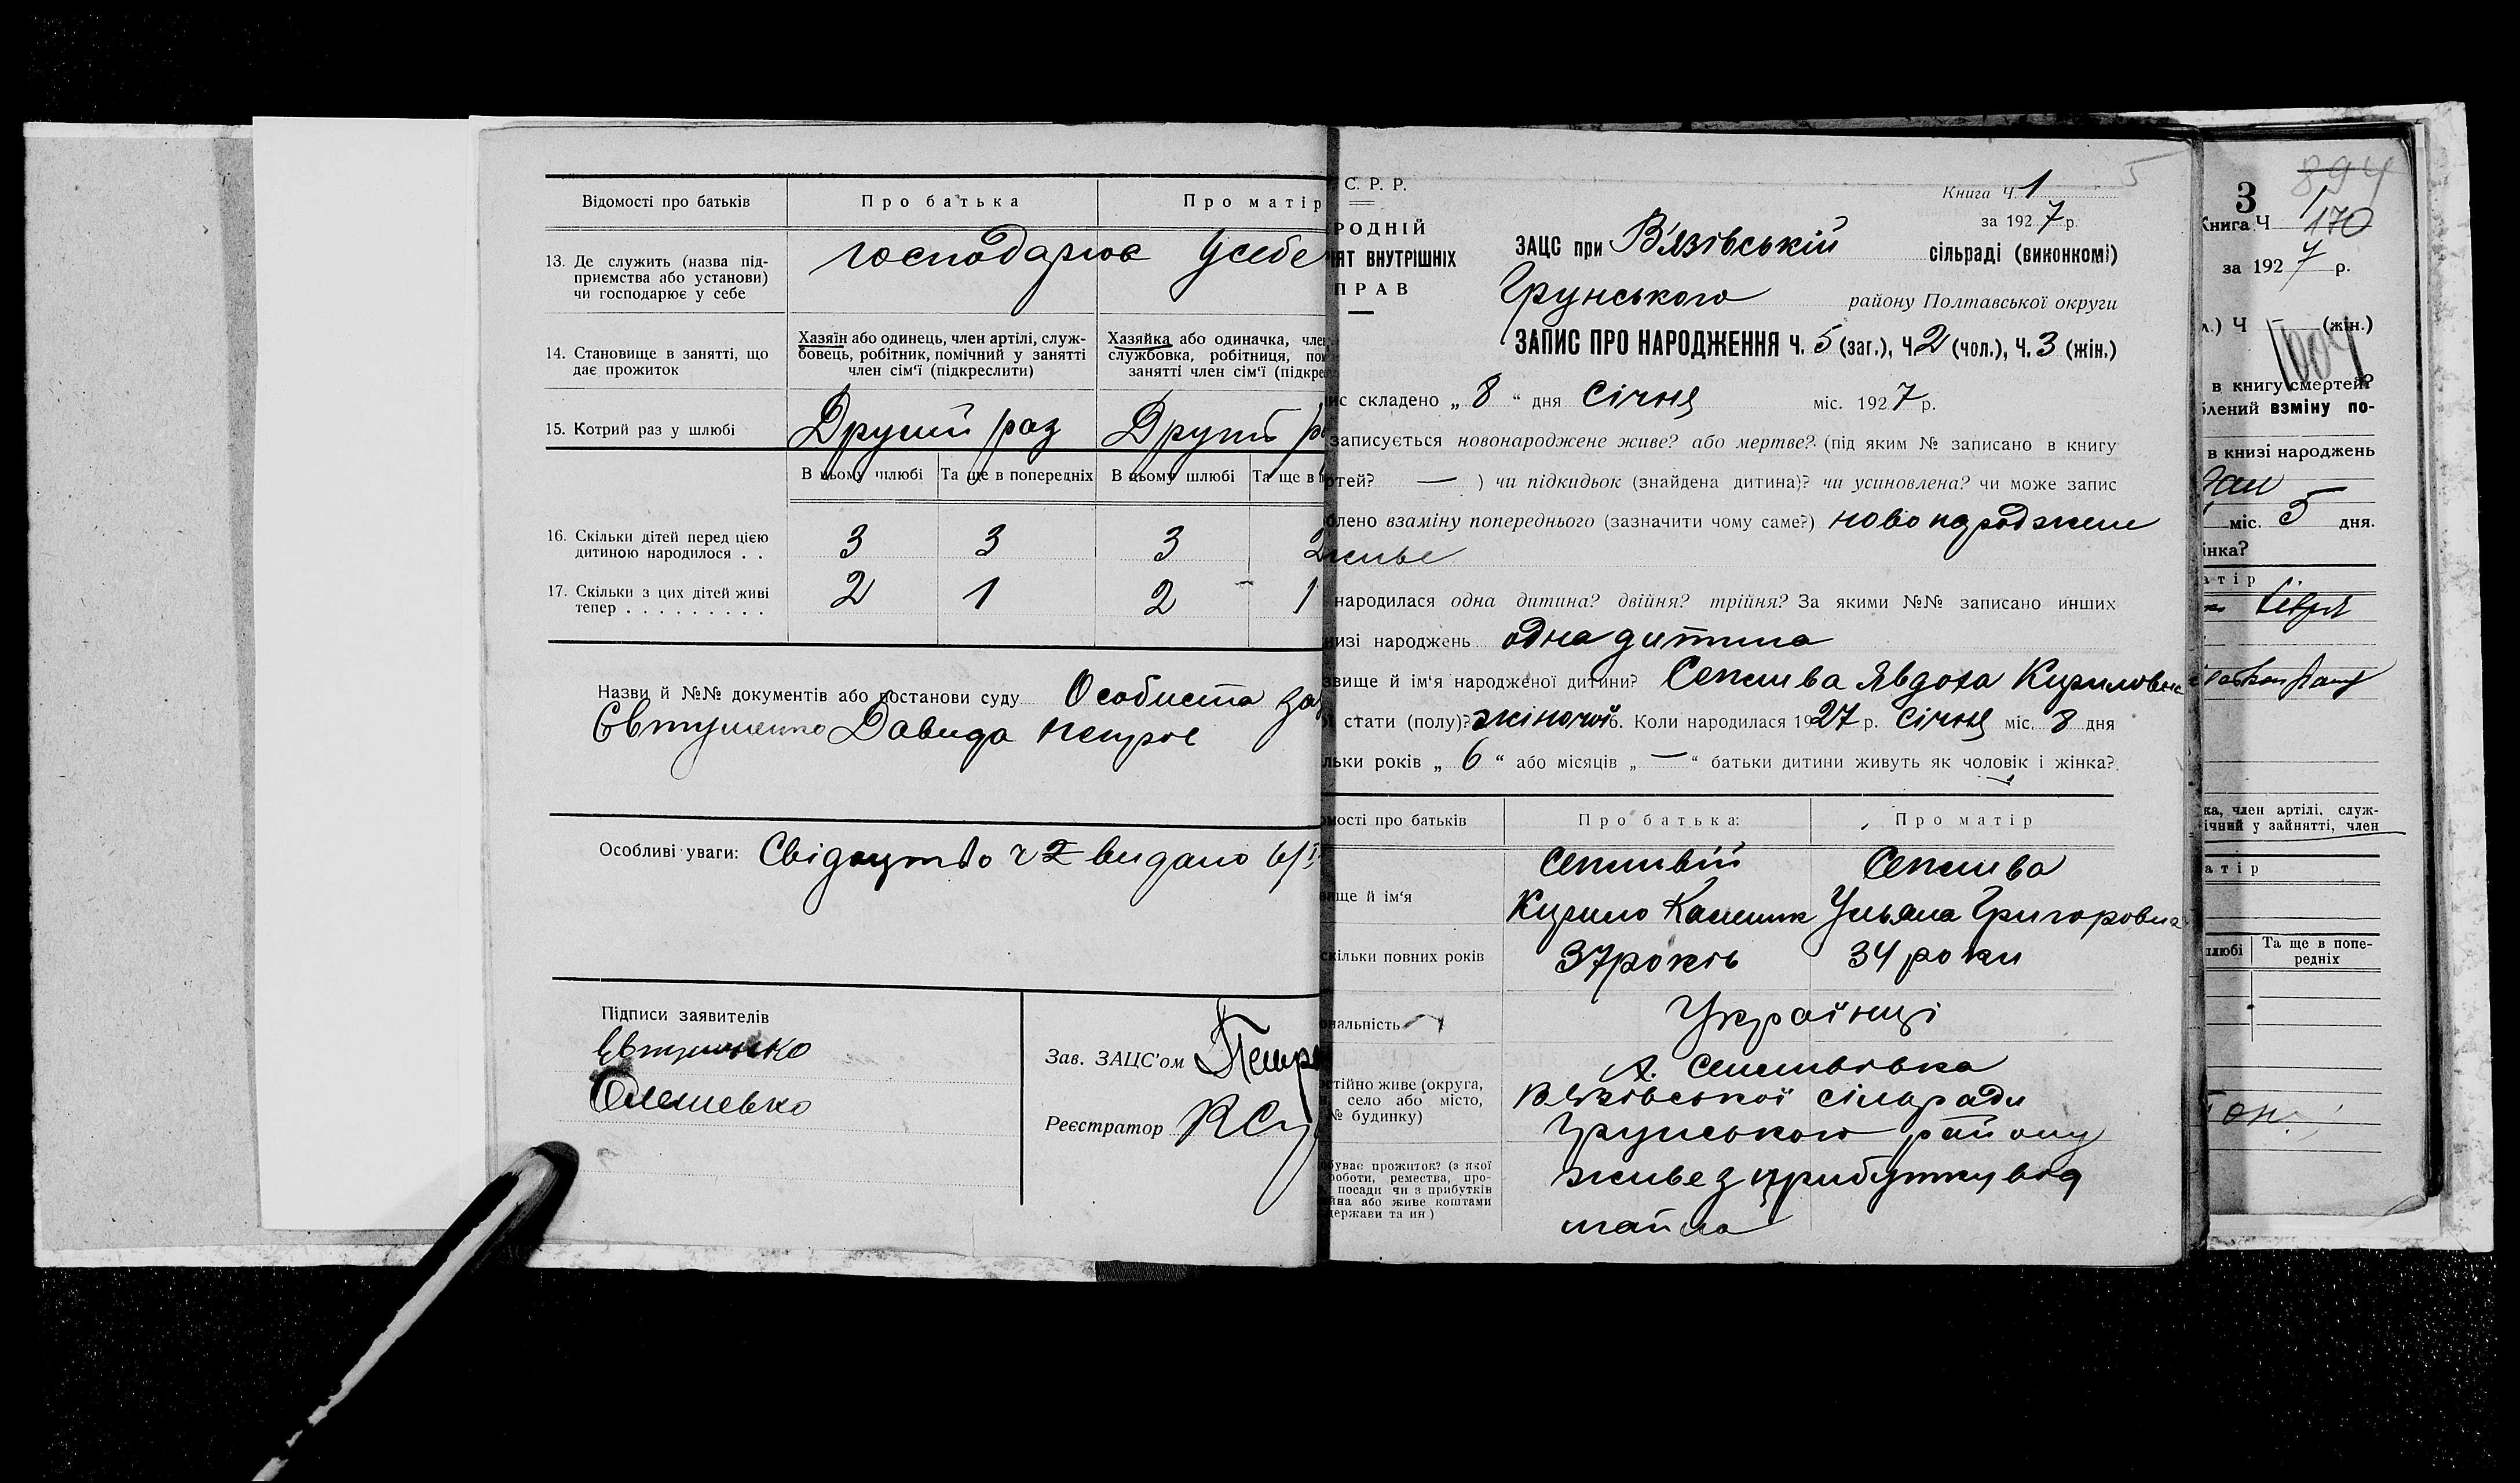 Відомості про батьків
Про батька
Про матір
13. Де служить (назва під-
приємства або установи)
чи господарює у себе
господарює у себе
14. Становище в занятті, що
дає прожиток
Хазяїн або одинець, член артілі, служ-
бовець, робітник, помічний у занятті
член сім'ї (підкреслити)
Хазяйка або одиначка, чле
службовка, робітниця, пом
занятті член сім'ї (підкре
15. Котрий раз у шлюбі
Другий раз
Другий
В цьому шлюбі
Та ще в попередніх
В цьому шлюбі
Та ще в
16. Скільки дітей перед цією
дитиною народилося . .
3 3 3 2
17. Скільки з цих дітей живі
тепер . . . . . . . . .
2 1 2 1
Назви й №№ документів або постанови суду Особиста за
Євтушенко Давида Петров
Особливі уваги: Свідоцтво ч 2 видано 6/I
Підписи заявителів
Євтушенко
Зав. ЗАЦС'ом Петр
Реєстратор
С. Р. Р.
РОДНІЙ
ЯТ ВНУТРІШНІХ
ПРАВ
5
Книга Ч. 1
за 1927 р.
ЗАЦС при В'язівській сільраді (виконкомі)
Грунського району Полтавської округи
ЗАПИС ПРО НАРОДЖЕННЯ Ч. 5 (заг.), Ч 2 (чол.), Ч. 3 (жін.)
ис складено „ 8 “ дня Січня міс. 1927 р.
записується новонароджене живе? або мертве? (під яким № записано в книгу
ртей? — ) чи підкидьок (знайдена дитина)? чи усиновлена? чи може запис
блено взаміну попереднього (зазначити чому саме?) новонароджене
живе
народилася одна дитина? двійня? трійня? За якими №№ записано инших
низі народжень одна дитина
звище й ім'я народженої дитини? Явдоха Кириловна
стати (полу)? жіночої. Коли народилася 1927 р. Січня міс. 8 дня
льки років „ 6 “ або місяців „ — “ батьки дитини живуть як чоловік і жінка?
омості про батьків
Про батька:
Про матір
вище й ім'я
Кирило
Ульяна Григоровна
скільки повних років
37 років
34 роки
ональність
Українці
стійно живе (округа,
село або місто,
№ будинку)
В'язівської сільради
Грунського району
буває прожиток? (з якої
роботи, ремества, про-
посади чи з прибутків
йна або живе коштами
держави та ин)
живе з прибутку від
майна
894
3
Книга Ч 1
170
за 1927 р.
л.) Ч — (жін.)
в книгу смертей?
блений взміну по-
в книзі народжень
міс. 5 дня.
інка?
атір
ка, член артілі, служ-
ічний у зайнятті, член
атір
шлюбі
Та ще в попе-
редніх